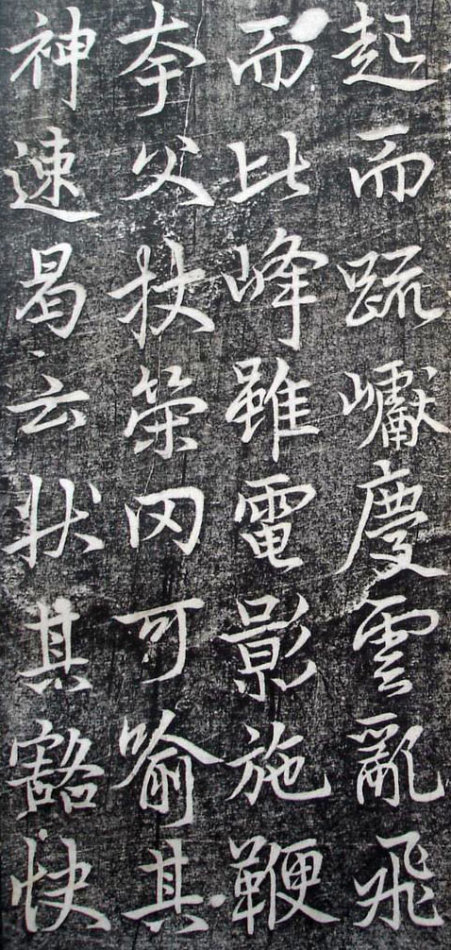 起而䟽巘慶雲亂飛
而比峰雖電影施鞭
夸父杖策罔可喻其
神速曷云状其豁快